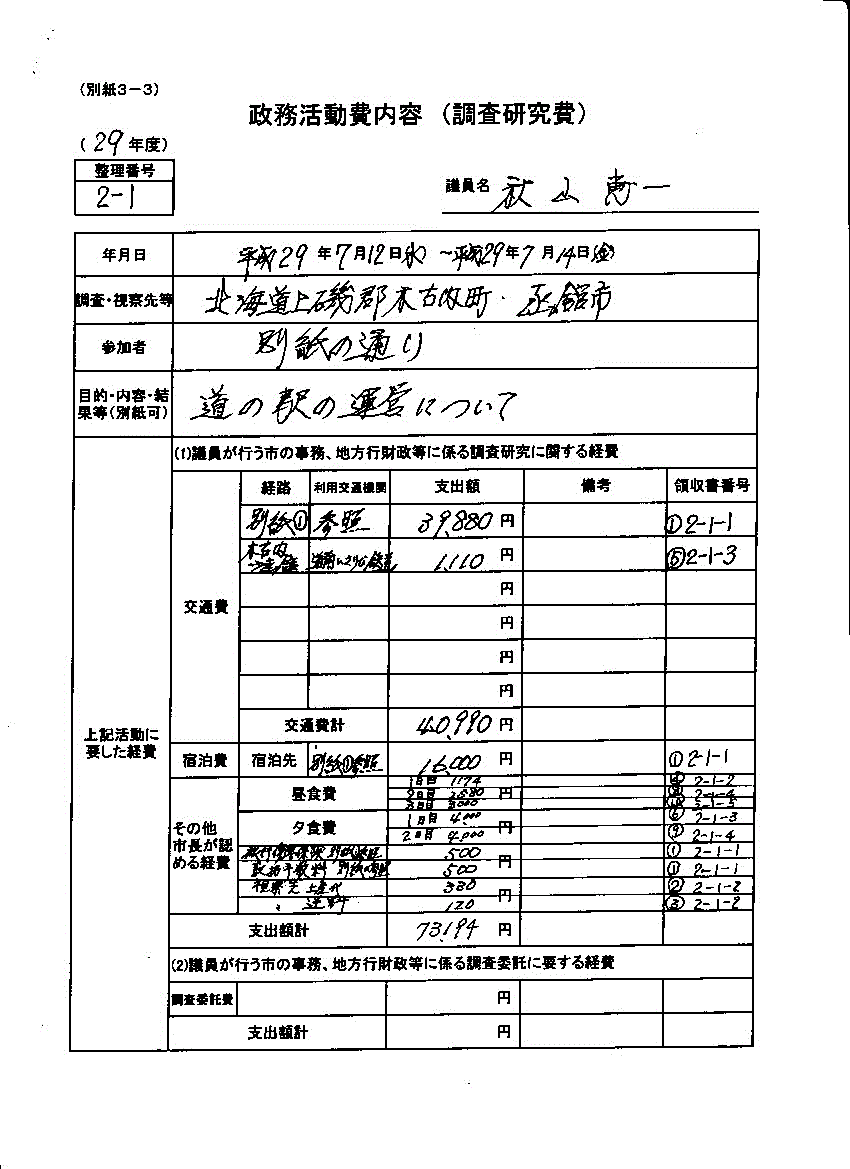 （別紙３－３）
政務活動費内容（調査研究費）
（29年度）
整理番号
2-1
議員名 秋山恵一
年月日 平成29年7月12日(水)～平成29年7月14日(金)
調査・視察先等 北海道上磯郡木古内町・函館市
参加者 別紙の通り
目的・内容・結果等（別紙可） 道の駅の運営について
上記活動に要した経費
(1)議員が行う市の事務、地方行財政等に係る調査研究に関する経費
経路 利用交通機関 支出額 備考 領収書番号
交通費
別紙① 参照 39,880円 ①2-1-1
木古内 1,110円 ⑤2-1-3
円
円
円
円
交通費計 40,990円
宿泊費 宿泊先 別紙①参照 16,000円 ①2-1-1
その他市長が認める経費
昼食費 1日目 1174 円 2-1-2
2日目 2-1-4
3日目 3000 2-1-5
夕食費 1日目 4,000 円 2-1-3
2日目 4,000 2-1-4
別紙①参照 500 円 ① 2-1-1
500 ① 2-1-1
視察先土産代 330 円 ② 2-1-2
〃 送料 120 ③ 2-1-2
支出額計 73,194円
(2)議員が行う市の事務、地方行財政等に係る調査委託に要する経費
調査委託費 円
支出額計 円